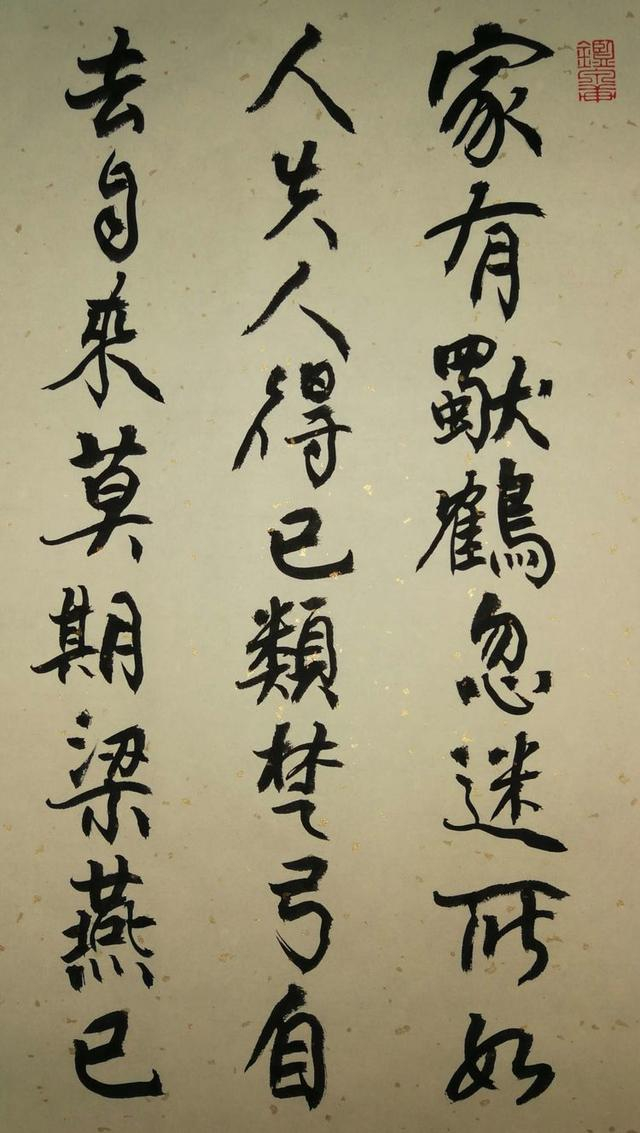 家有獨鶴忽迷所如
人失人得已類楚弓自
去自來莫期梁燕已